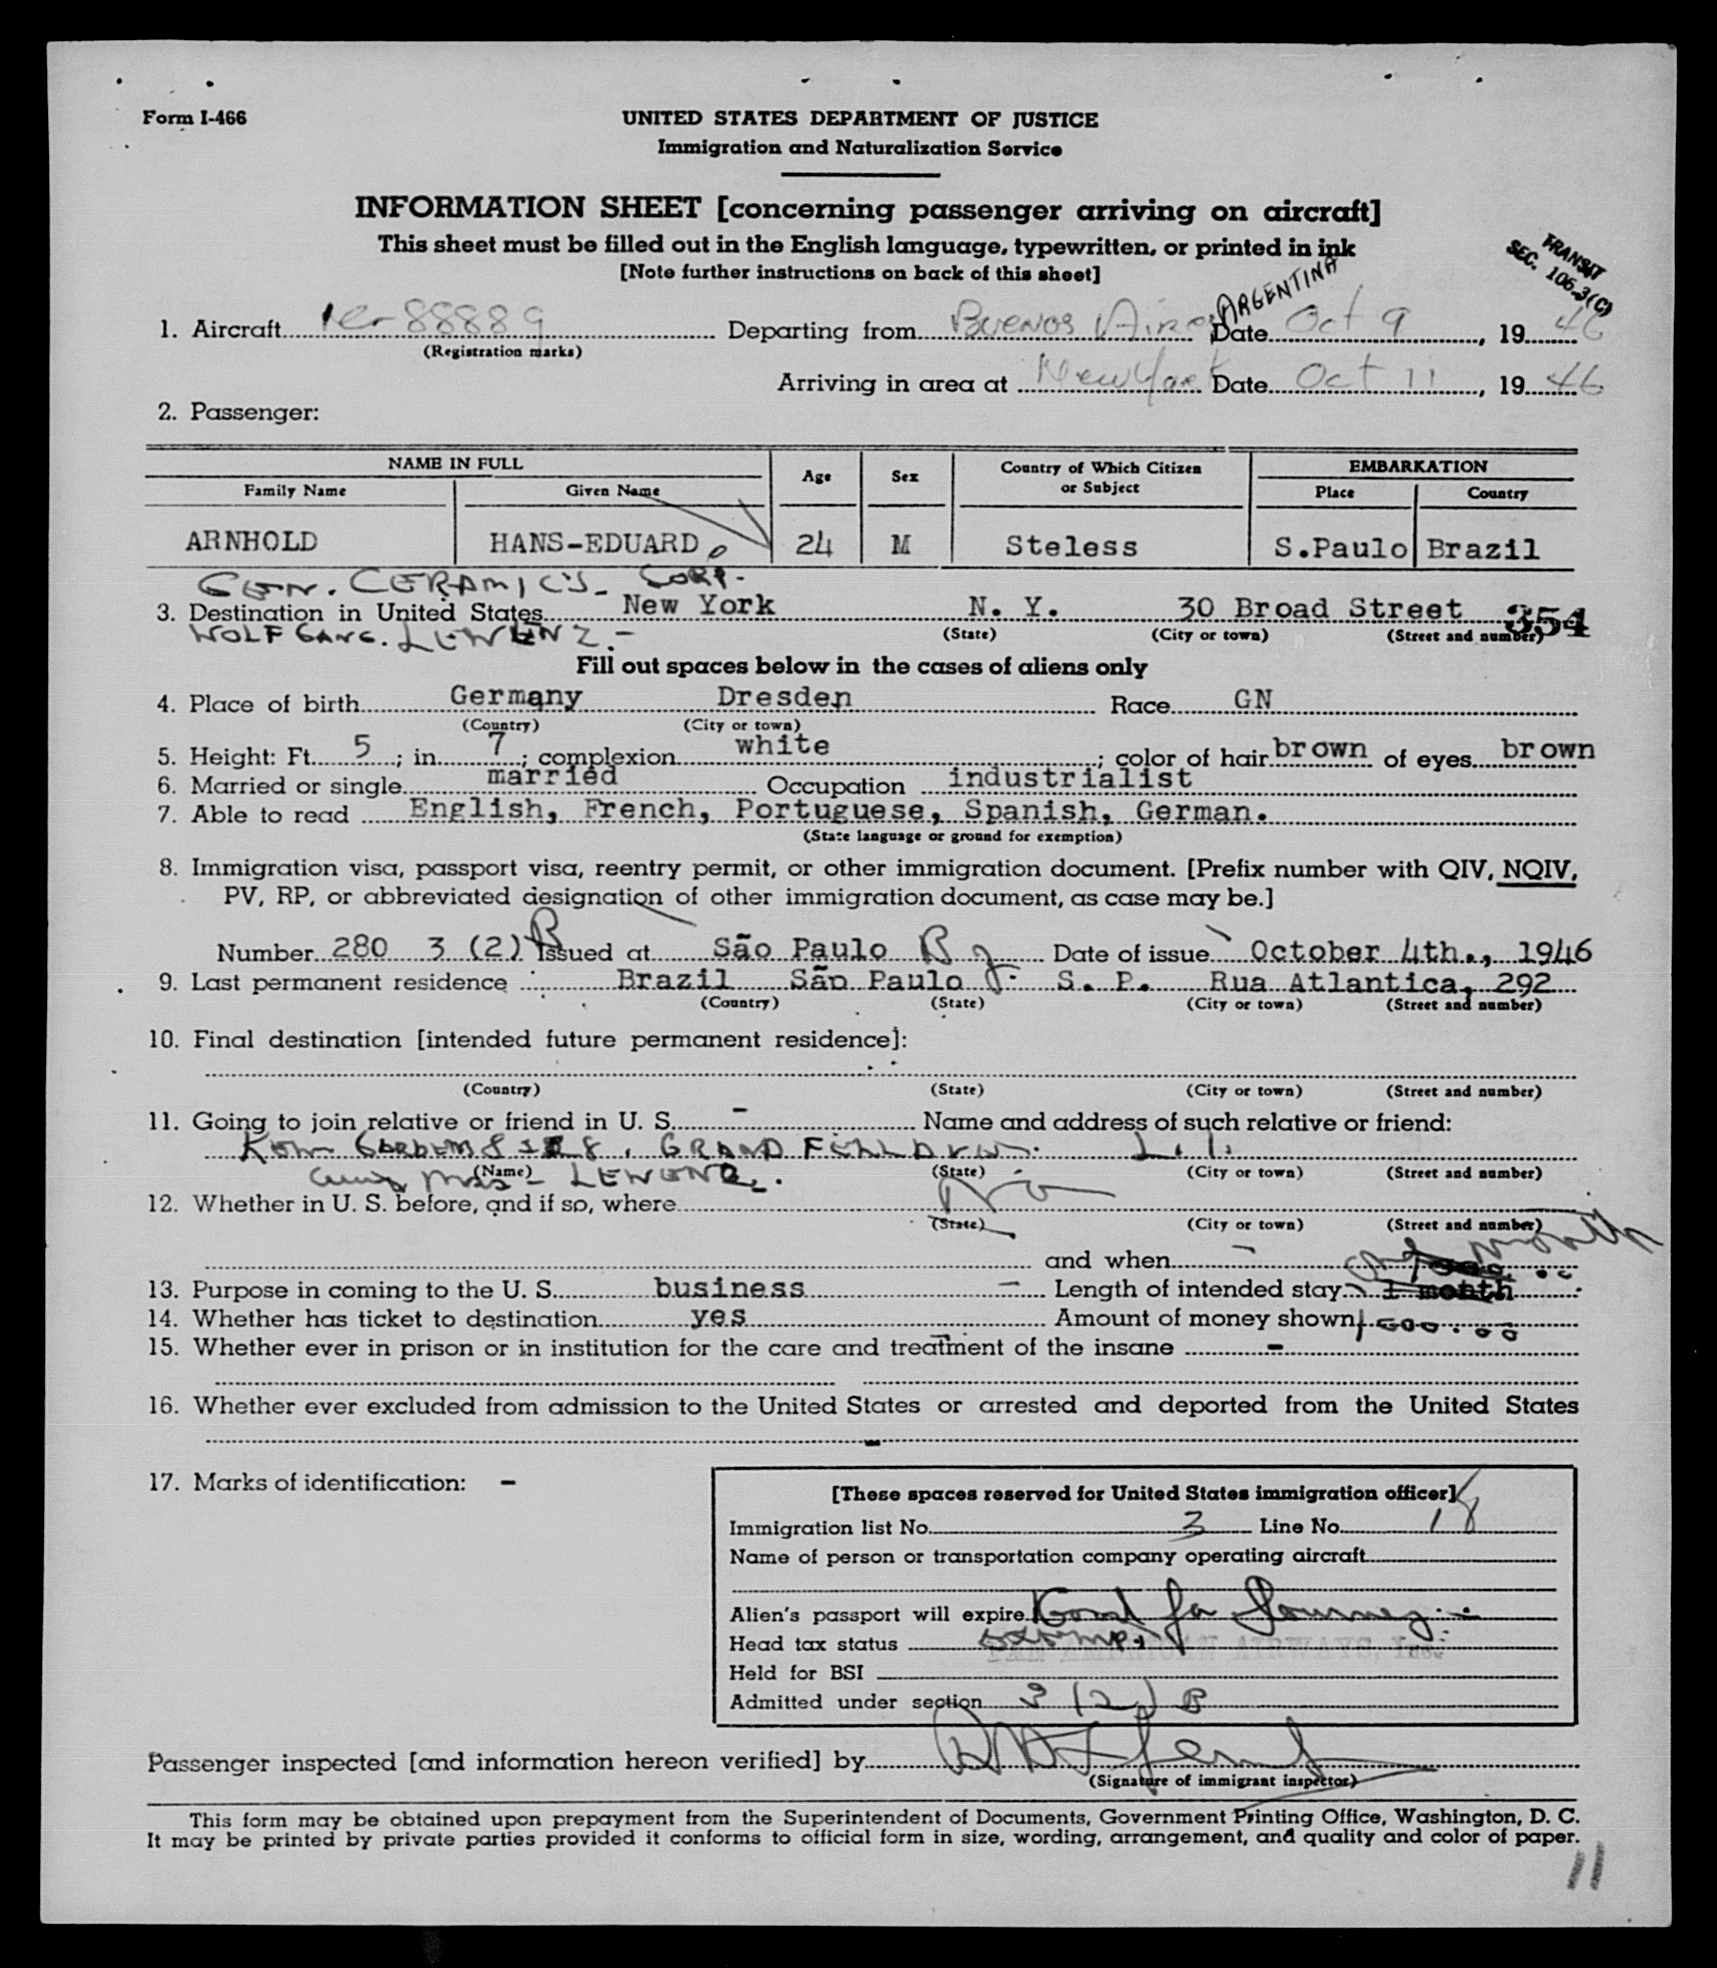 Form I-466
UNITED STATES DEPARTMENT OF JUSTICE
Immigration and Naturalization Service
INFORMATION SHEET [concerning passenger arriving on aircraft]
This sheet must be filled out in the English language, typewritten, or printed in ink
[Note further instructions on back of this sheet]
TRANSIT
SEC. 106.3(C)
ARGENTINA
1. Aircraft 88889 Departing from Buenos Aires Date Oct 9, 1946
(Registration marks)
Arriving in area at New York Date Oct 11, 1946
2. Passenger:
NAME IN FULL Age Sex Country of Which Citizen or Subject EMBARKATION
Family Name Given Name Place Country
ARNHOLD HANS-EDUARD 24 M Steless S.Paulo Brazil
GEN. CERAMICS CORP.
3. Destination in United States New York N. Y. 30 Broad Street 354
WOLFGANG. LEWENZ.-
(State) (City or town) (Street and number)
Fill out spaces below in the cases of aliens only
4. Place of birth Germany Dresden Race GN
(Country) (City or town)
5. Height: Ft. 5; in. 7; complexion white; color of hair brown of eyes brown
6. Married or single married Occupation industrialist
7. Able to read English, French, Portuguese, Spanish, German.
(State language or ground for exemption)
8. Immigration visa, passport visa, reentry permit, or other immigration document. [Prefix number with QIV, NQIV,
PV, RP, or abbreviated designation of other immigration document, as case may be.]
Number 280 3 (2) B Issued at São Paulo Date of issue October 4th., 1946
9. Last permanent residence Brazil São Paulo S. P. Rua Atlantica, 292
(Country) (State) (City or town) (Street and number)
10. Final destination [intended future permanent residence]:
(Country) (State) (City or town) (Street and number)
11. Going to join relative or friend in U. S. - Name and address of such relative or friend:
KEW GARDENS L.I.
(Name) (State) (City or town) (Street and number)
12. Whether in U. S. before, and if so, where No
(State) (City or town) (Street and number)
and when - one month
13. Purpose in coming to the U. S. business - Length of intended stay 1 month
14. Whether has ticket to destination yes Amount of money shown
15. Whether ever in prison or in institution for the care and treatment of the insane -
16. Whether ever excluded from admission to the United States or arrested and deported from the United States
-
17. Marks of identification: -
[These spaces reserved for United States immigration officer]
Immigration list No. 3 Line No. 18
Name of person or transportation company operating aircraft
Alien's passport will expire Good for Journey
Head tax status exempt
PAN AMERICAN AIRWAYS, Inc.
Held for BSI
Admitted under section 3 (2) B
Passenger inspected [and information hereon verified] by
(Signature of immigrant inspector)
This form may be obtained upon prepayment from the Superintendent of Documents, Government Printing Office, Washington, D. C.
It may be printed by private parties provided it conforms to official form in size, wording, arrangement, and quality and color of paper.
11